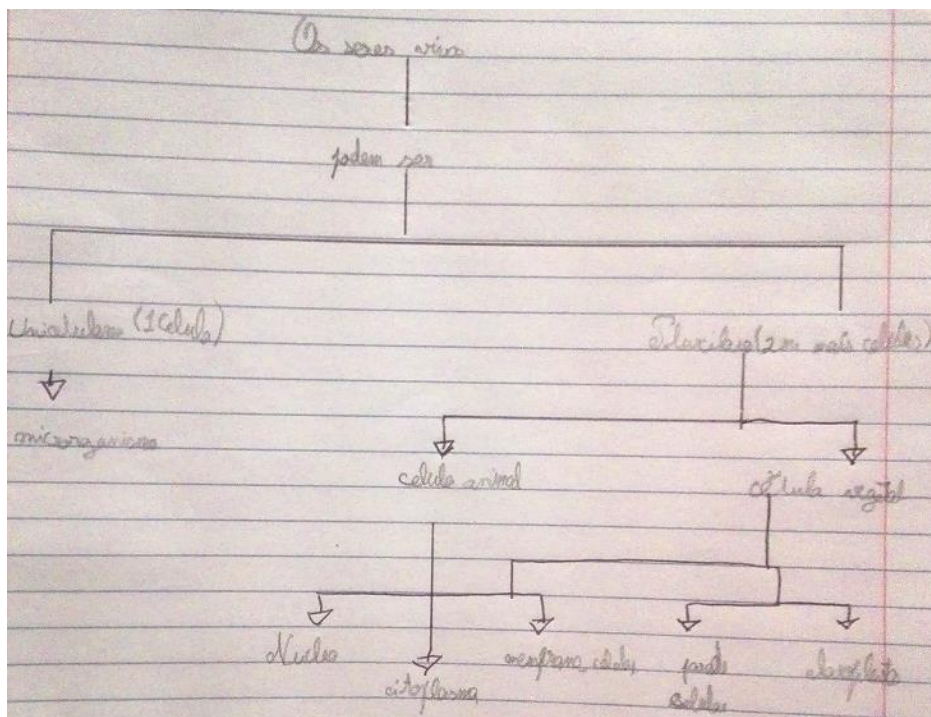 Os seres vivos
podem ser
Unicelulares (1 celula)
Pluricelulares (2 ou mais celulas)
microrganismo
celula animal
célula vegetal
Nucleo
citoplasma
menfrana celular
parede
celular
cloroplasto